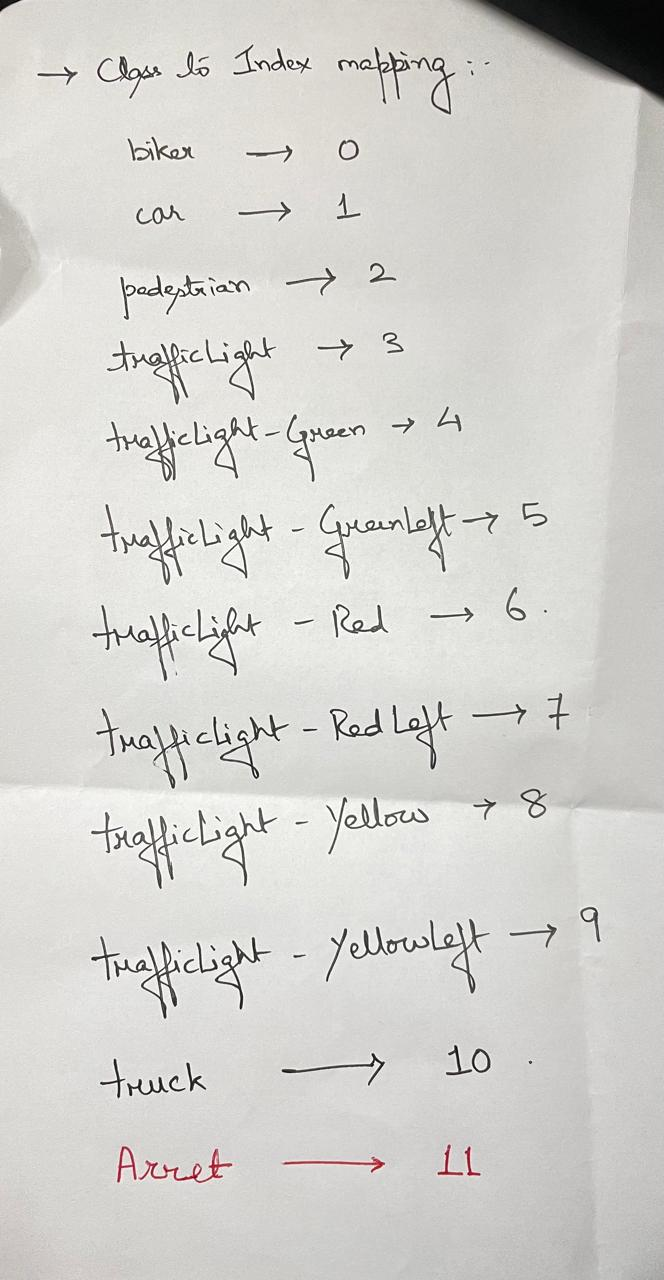 → Class to Index mapping :-
biker → 0
car → 1
pedestrian → 2
trafficLight → 3
trafficLight-Green → 4
trafficLight - GreenLeft → 5
trafficLight - Red → 6.
trafficLight - RedLeft → 7
trafficLight - Yellow → 8
trafficLight - YellowLeft → 9
truck → 10.
Arret → 11